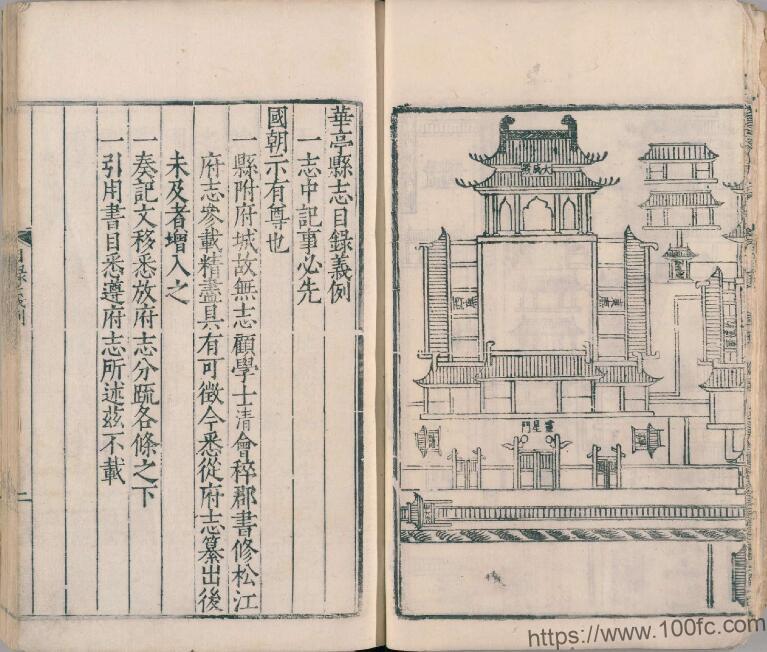 大成殿
靈星門
華亭縣志目錄義例
一志中記事必先
國朝示有尊也
一縣附府城故無志顧學士清會稡郡書修松江
府志參載精盡具有可徵今悉從府志纂出後
未及者增入之
一奏記文移悉放府志分䟽各條之下
一引用書目悉遵府志所述茲不載
二
https://www.100fc.com